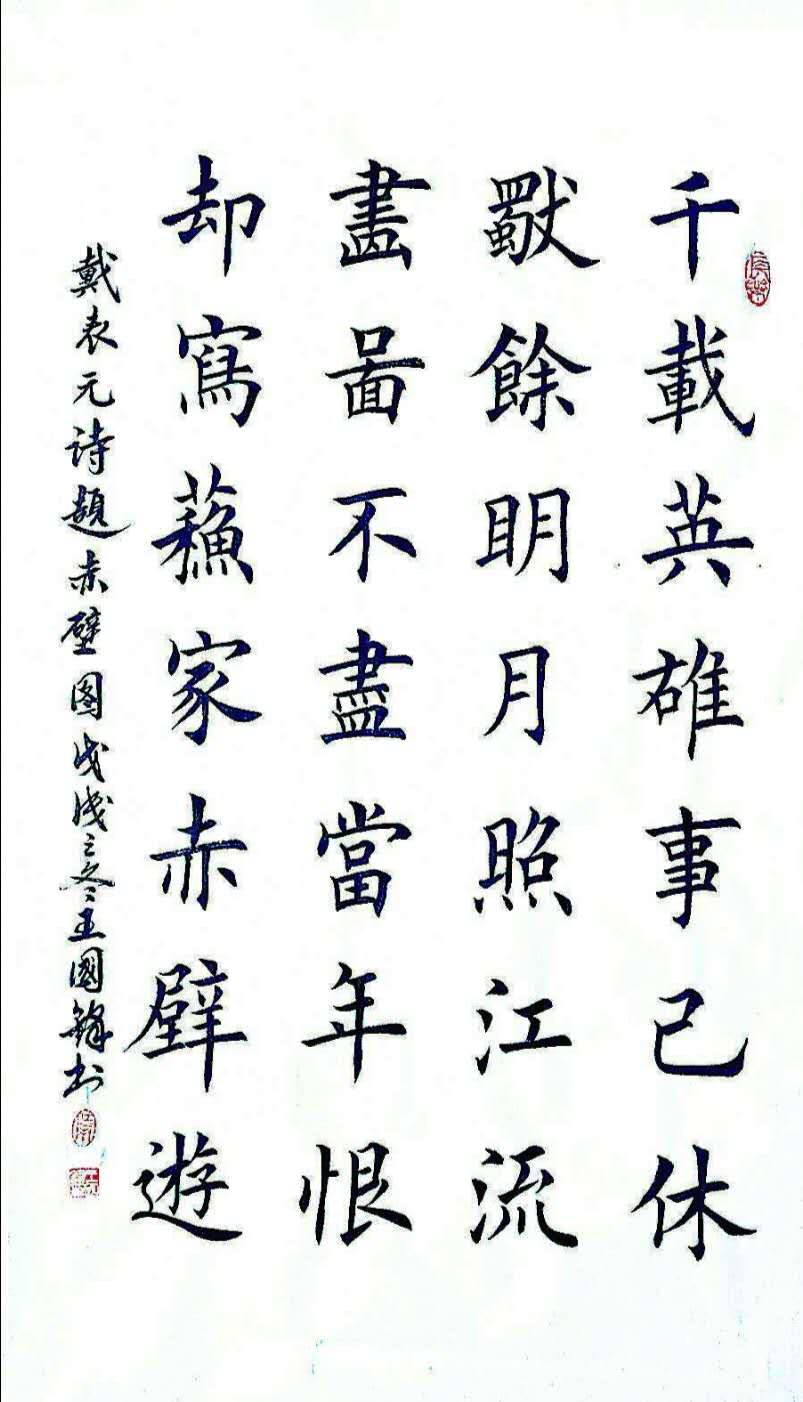 千載英雄事已休
獨餘眀月照江流
畵啚不盡當年恨
却寫蘓家赤壁遊
戴表元诗題赤壁图戊戌之冬王國鋒书